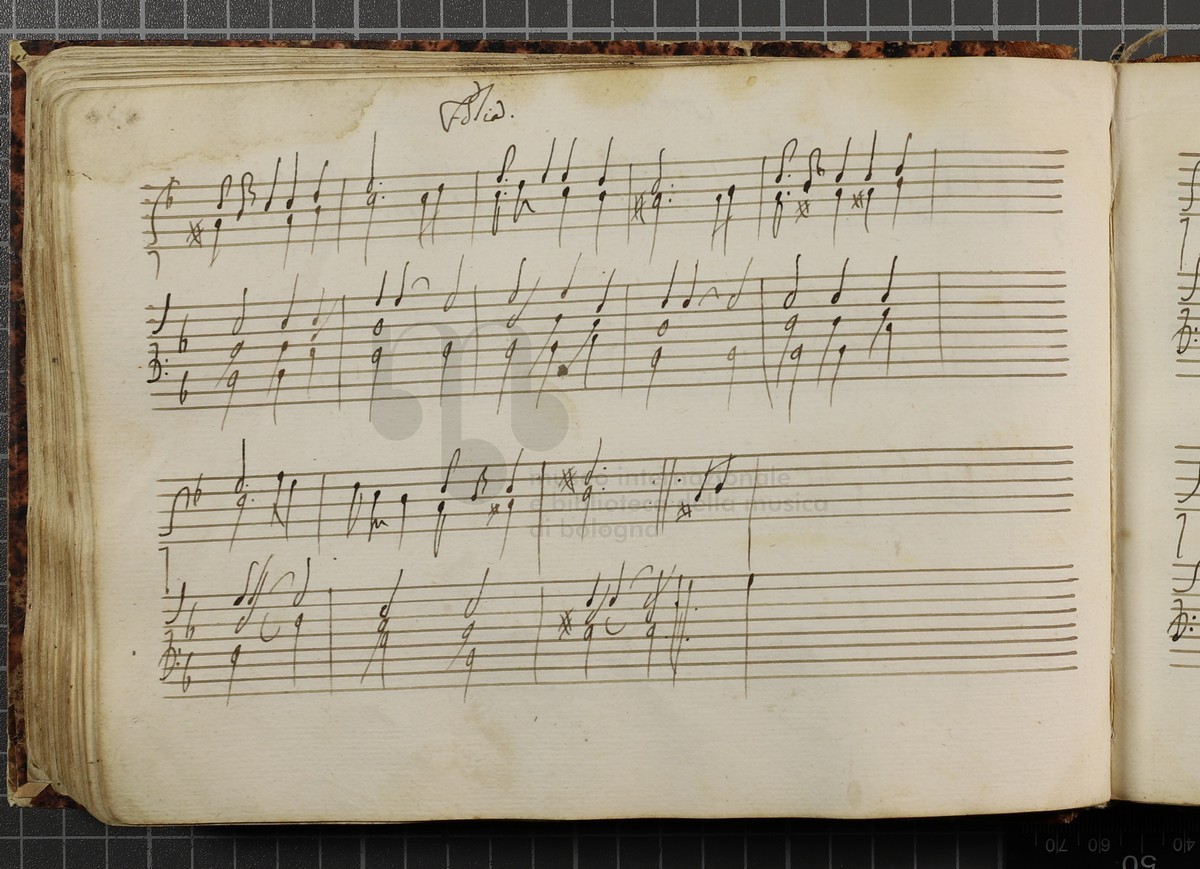 Folia.
museo internazionale
e biblioteca della musica
di bologna
70 60 50 40